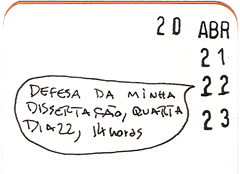 20 ABR
21
22
23
DEFESA DA MINHA
DISSERTAÇÃO, QUARTA
DIA 22, 14 horas